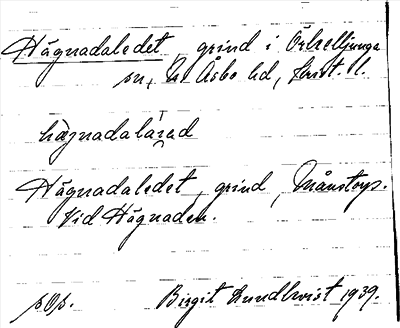 Hägnadaledet, grind i Örkelljunga
sn, N. Åsbo hd, Krist. l.
hägnadalärad
Hägnadaledet, grind, Månstorp.
Vid Hägnaden.
sOp. Birgit Lundkvist 1939.